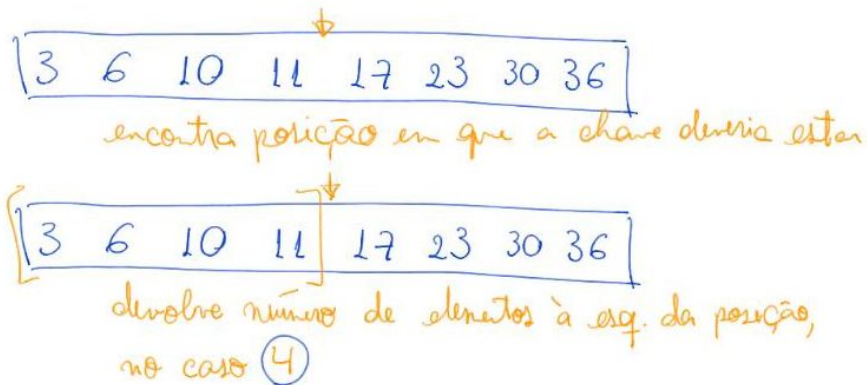 3 6 10 11 17 23 30 36
encontra posição em que a chave deveria estar
3 6 10 11 17 23 30 36
devolve número de elementos à esq. da posição,
no caso 4